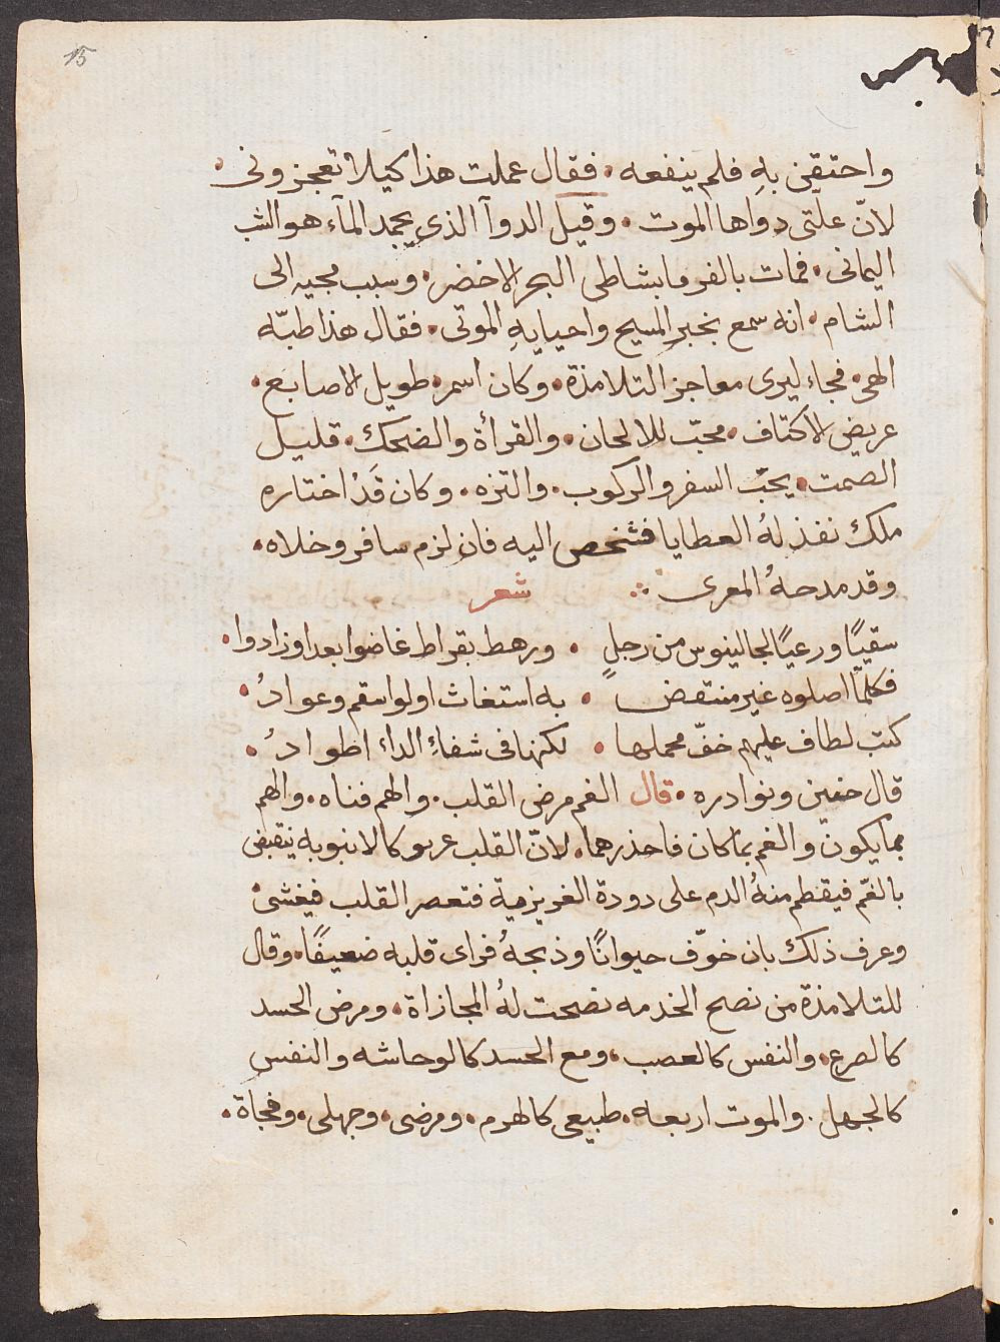 15
واحتقن بهِ فلم ينفعه • فقال عملت هذا كيلا تعجزونى •
لانّ علتى دواها الموت • وقيل الدوآ الذي يجمد المآء هو الشب
اليمانى • فمات بالفرما بشاطى البحر الاخضر • وسبب مجيه الى
الشام • انه سمع بخبر المسيح واحيايهِ الموتى • فقال هذا طبّه
الهى • فجاء ليرى معاجز التلامذة • وكان اسمر • طويل الاصابع •
عريض الاكتاف • محبّ للالحان • والقرأة والضحك • قليل
الصمت • يحبّ السفر والركوب • والتزه • وكان قَدْ اختاره
ملك نفذ لهُ العطايا فشخص اليه فان لزم سافر وخلاه •
وقد مدحهُ المعرى ∴ شعر
سقيًا ورعيًا لجالينوس من رجلٍ • ورهط بقراط غاضوا بعد اوزادوا •
فكلّما اصلوه غير منتقض • به استغاث اولوا سقم وعوادُ •
كتب لطاف عليهم خفّ محملها • لكنها فى شفاءِ الداءِ اطوادُ •
قال حنين ونوادره • قال الغم مرض القلب • والهم فناه • والهم
بما يكونّ والغم بما كان فاحذرهما • لانّ القلب عربو كالانبوبه ينقبض
بالغّم فيقطم منهُ الدم على دودة الغريزمية فتعصر القلب فيغشىْ
وعرف ذلك بان خوّف حيوانًا وذبحهُ فراى قلبه ضعيفًا • وقال
للتلامذة من نصح الخدمه نصحت لهُ المجازاة • ومرض الحسد
كالصرع • والنفس كالعصب • ومع الحسد كالوحاشه والنفس
كالجهل • والموت اربعه • طبيعى كالهرم • ومرضى • وجهلى • وفجاة •